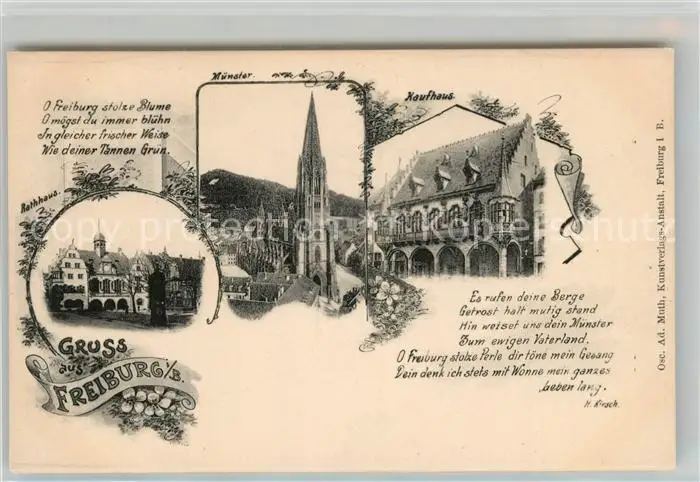 O Freiburg stolze Blume
O mögst du immer blühn
In gleicher frischer Weise
Wie deiner Tannen Grün.
Münster.
Kaufhaus.
Rathhaus.
Es rufen deine Berge
Getrost halt mutig stand
Hin weiset uns dein Münster
Zum ewigen Vaterland.
O Freiburg stolze Perle dir töne mein Gesang
Dein denk ich stets mit Wonne mein ganzes
Leben lang.
H. Kirsch.
GRUSS
aus
FREIBURG i/B.
Osc. Ad. Muth, Kunstverlags-Anstalt, Freiburg I B.